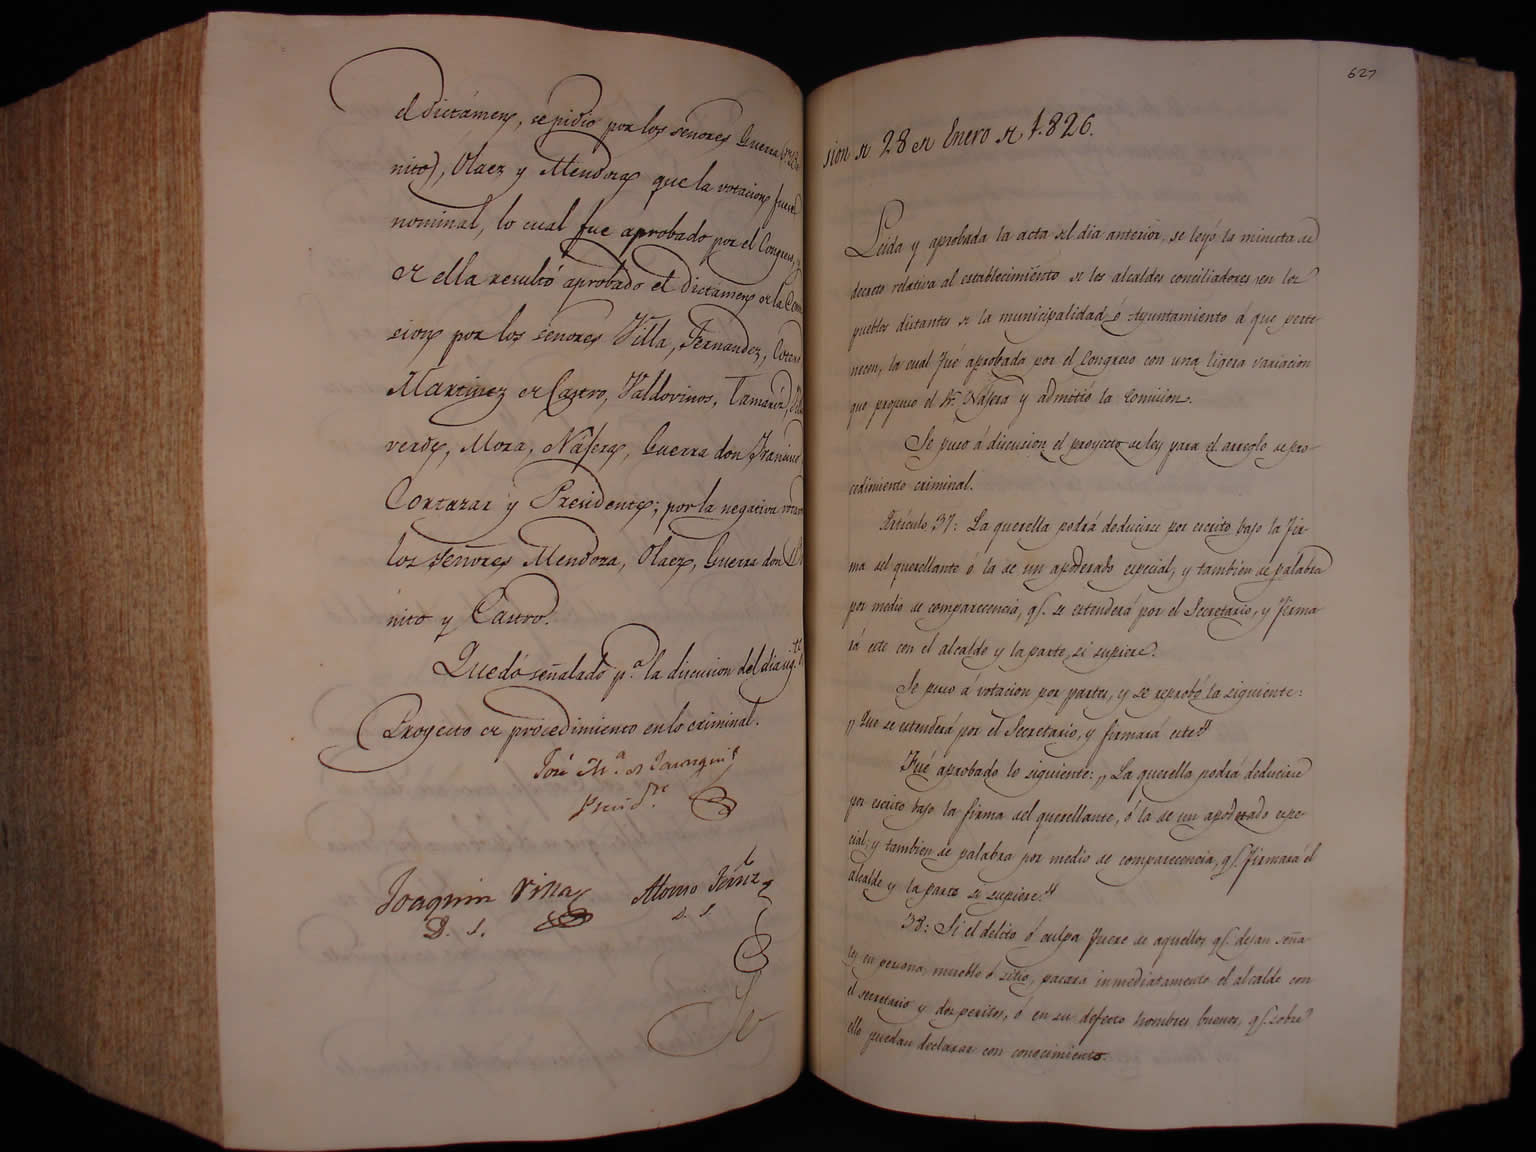 el dictámen, se pidió por los señores Guerra (Dn. Be
nito), Olaez y Mendoza que la votacion fuera
nominal, lo cual fue aprobado por el Congreso, y
de ella resultó aprobado el dictámen de la Comi
sion por los señores Villa, Fernandez,
Martinez de Castro, Valdovinos, Tamariz,
verde, Mora, Nájera, Guerra don Francisco
Cortazar y Presidente; por la negativa votaron
los señores Mendoza, Olaez, Guerra don Be
nito y Castro.
Quedó señalado pa. la discusion del dia sigte. el
Proyecto de procedimiento en lo criminal.
José Ma. de Jauregui
Presidte.
Joaquin Villa
D. S.
Alonso Fernz.
D. S.
627
sion de 28 de Enero de 1.826.
Leida y aprobada la acta del dia anterior, se leyó la minuta de
decreto relativa al establecimiento de los alcaldes conciliadores en los
pueblos distantes de la municipalidad, ó Ayuntamiento á que perte-
necen, la cual fué aprobada por el Congreso con una ligera variacion
que propuso el Sr. Nájera y admitió la Comision.
Se puso á discusion el proyecto de ley para el arreglo de pro-
cedimiento criminal.
Artículo 37: La querella podrá deducirse por escrito bajo la fir-
ma del querellante ó la de un apoderado especial, y tambien de palabra
por medio de comparecencia, q. se estenderá por el Secretario, y firma-
rá este con el alcalde y la parte, si supiere.
Se puso á votacion por partes, y se reprobó la siguiente:
„Que se estenderá por el Secretario, y firmará este"
Fué aprobado lo siguiente: „La querella podrá deducirse
por escrito bajo la firma del querellante, ó la de un apoderado espe-
cial; y tambien de palabra por medio de comparecencia, q. firmará el
alcalde y la parte si supiere."
38: Si el delito ó culpa fuere de aquellos q. dejan seña-
les en persona, mueble ó sitio, pasará inmediatamente el alcalde con
el secretario y dos peritos, ó en su defecto hombres buenos, q. sobre
ello puedan declarar con conocimiento.